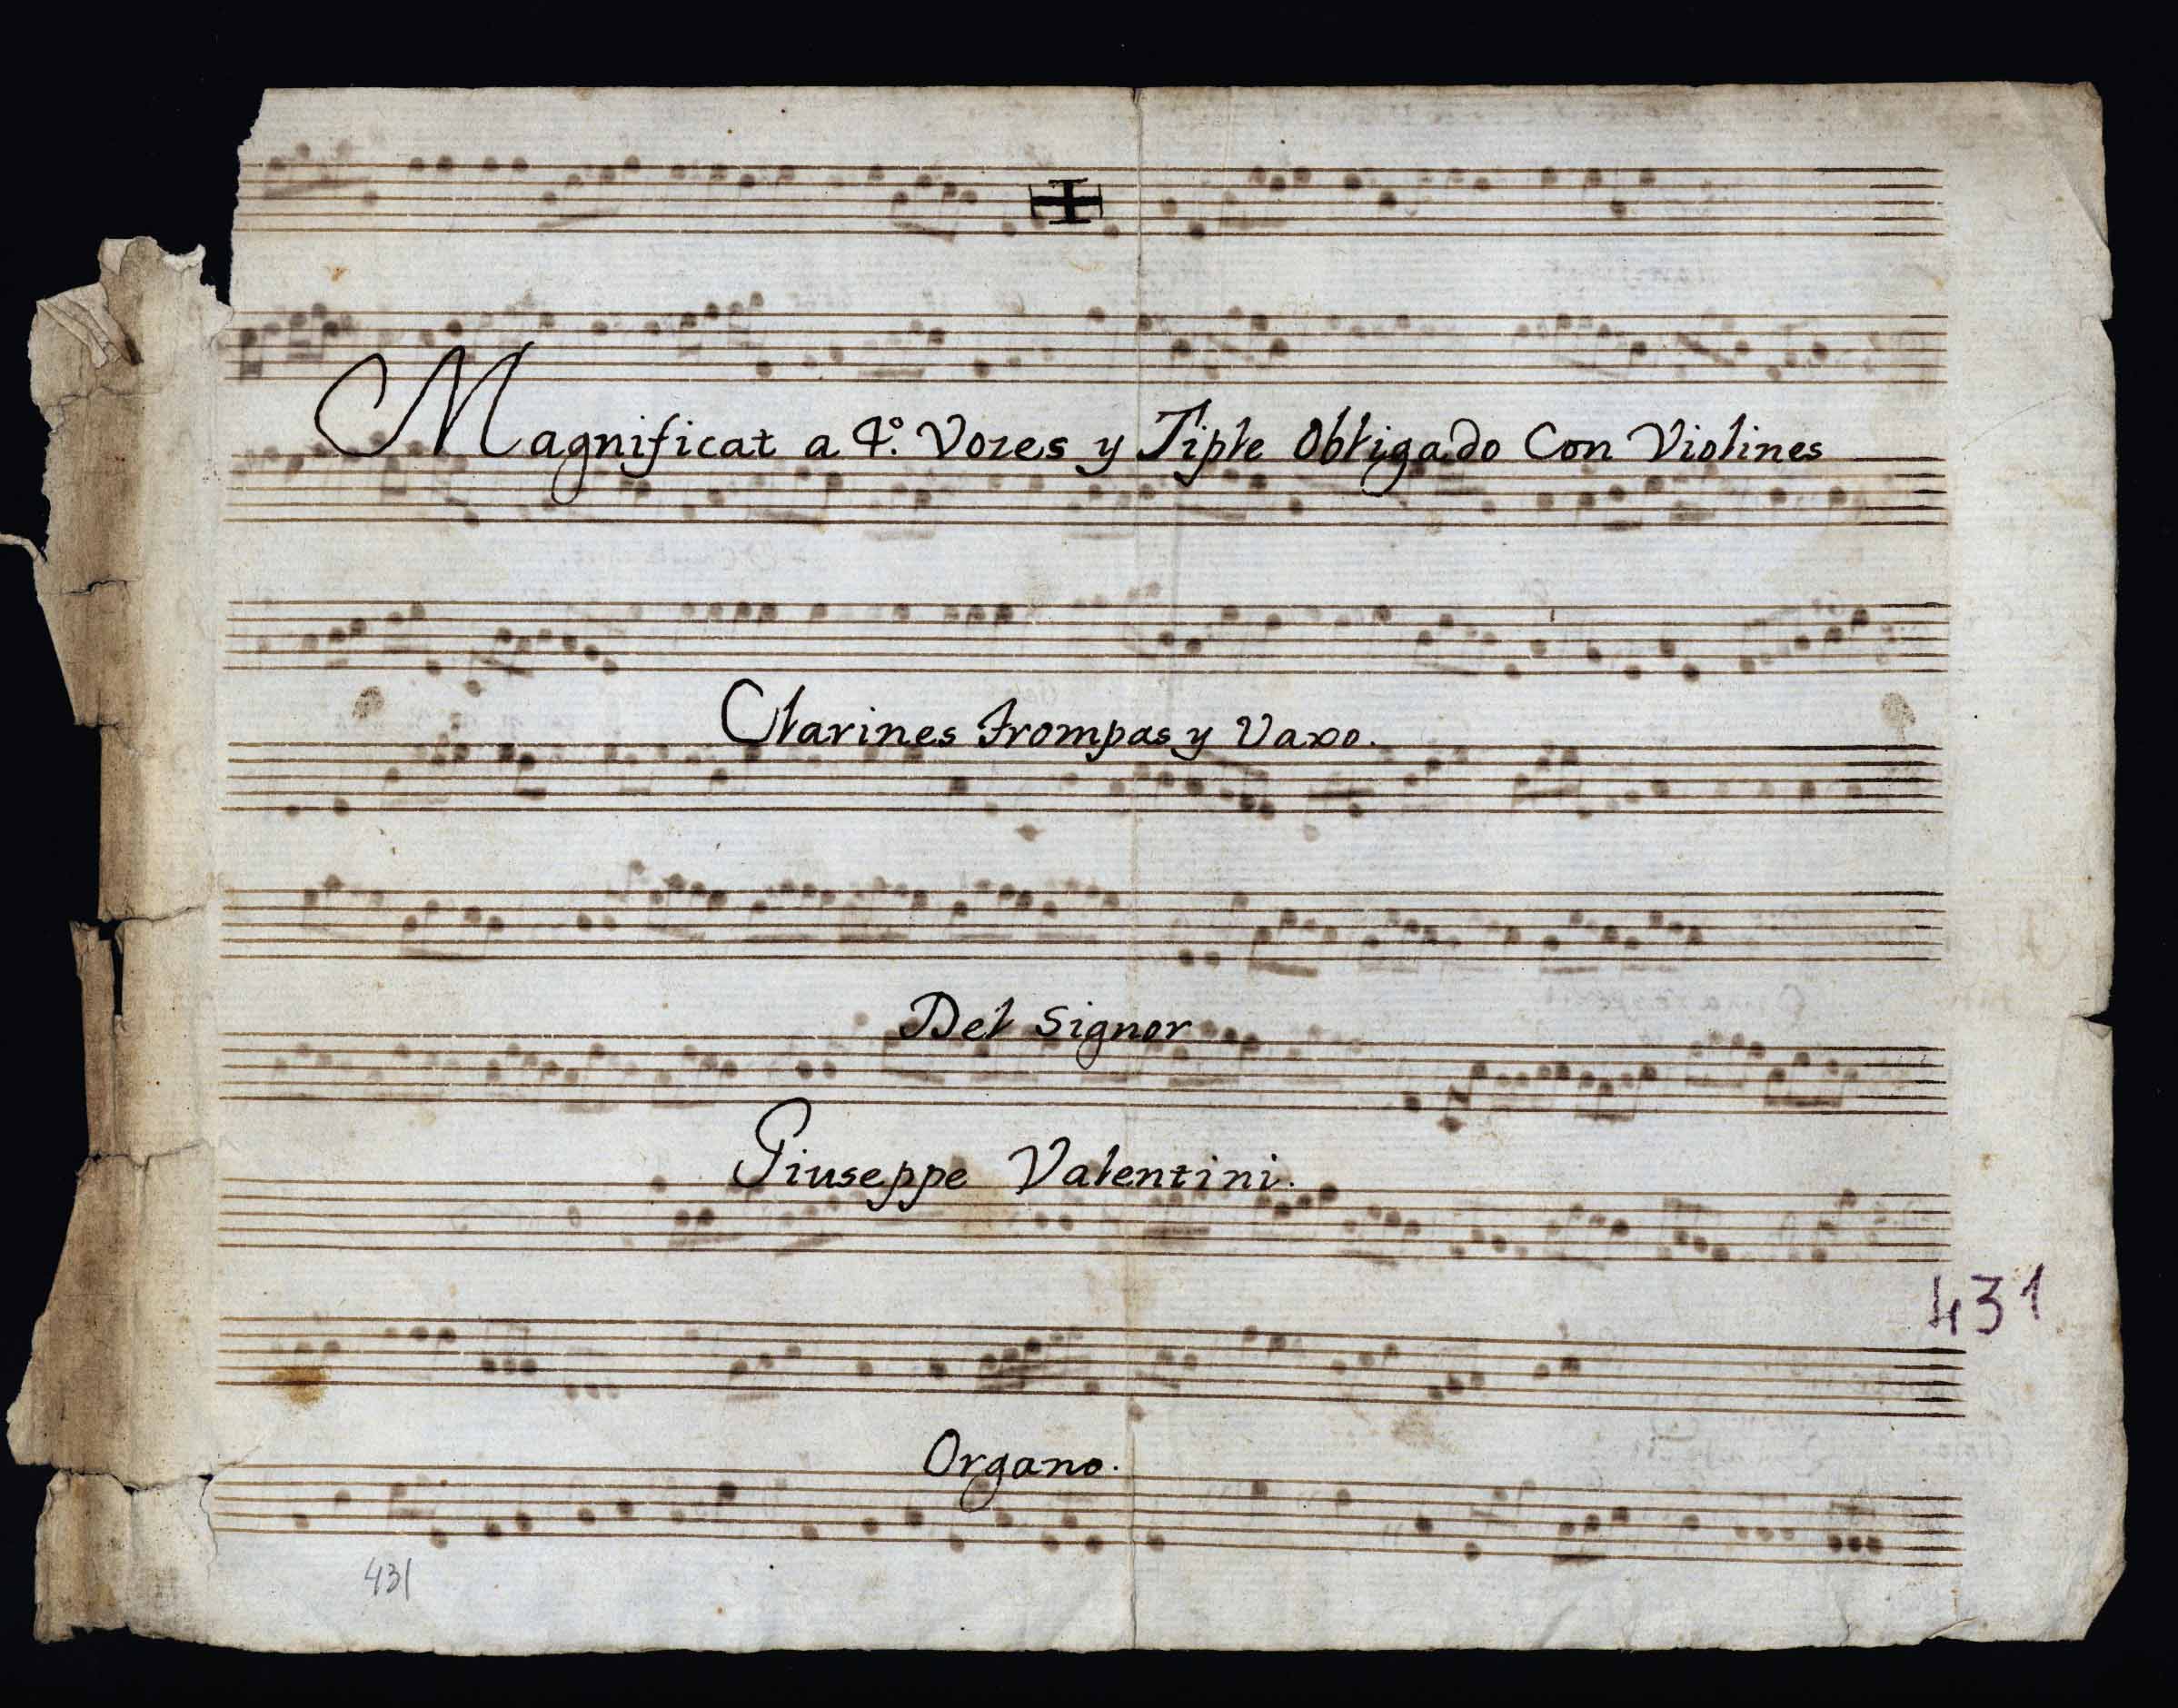 Magnificat a 4º. Vozes y Tiple Obligado Con Violines
Clarines trompas y Vaxo.
Del Signor
Giuseppe Valentini.
431
Organo.
431